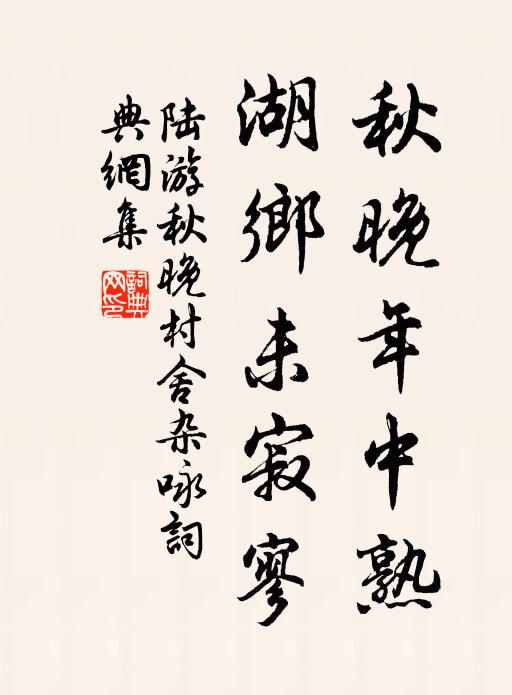 秋晚年中熟
湖鄉未寂寥
陆游秋晚村舍杂咏詞
典網集
詞典
网印